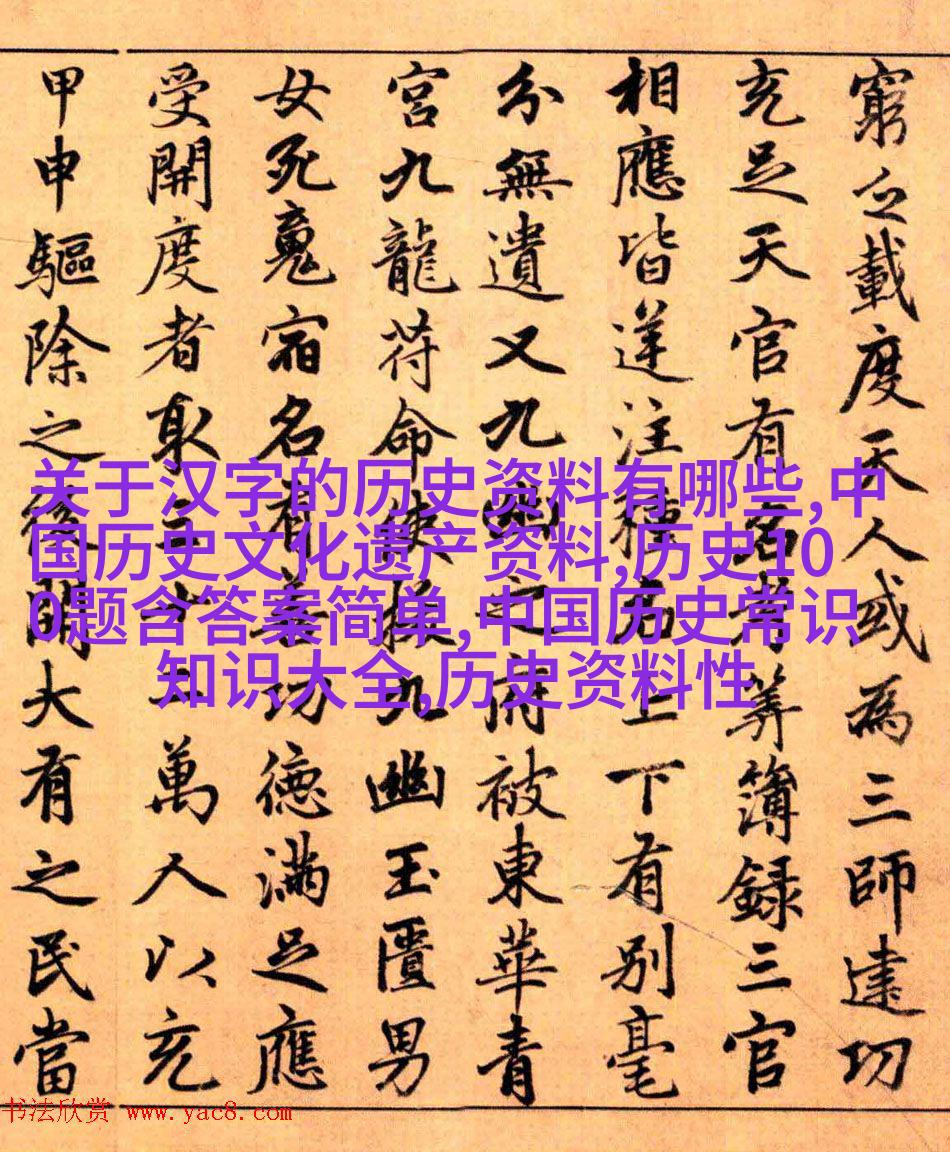 窮之載度天人或為三師建功
充足天官有名者筭簿錄三官
相應皆逆注種名上下有別毫
分無遺又九幽之府被東華青
宮九龍符命使九幽玉匱男
女死魂宿名有善功德滿足應
受開度者取三十二萬人以充
甲申驅除之後開大有之民當
关于汉字的历史资料有哪些,中
国历史文化遗产资料,历史10
0题含答案简单,中国历史常识
知识大全,历史资料性
书法欣赏 www.yac8.com